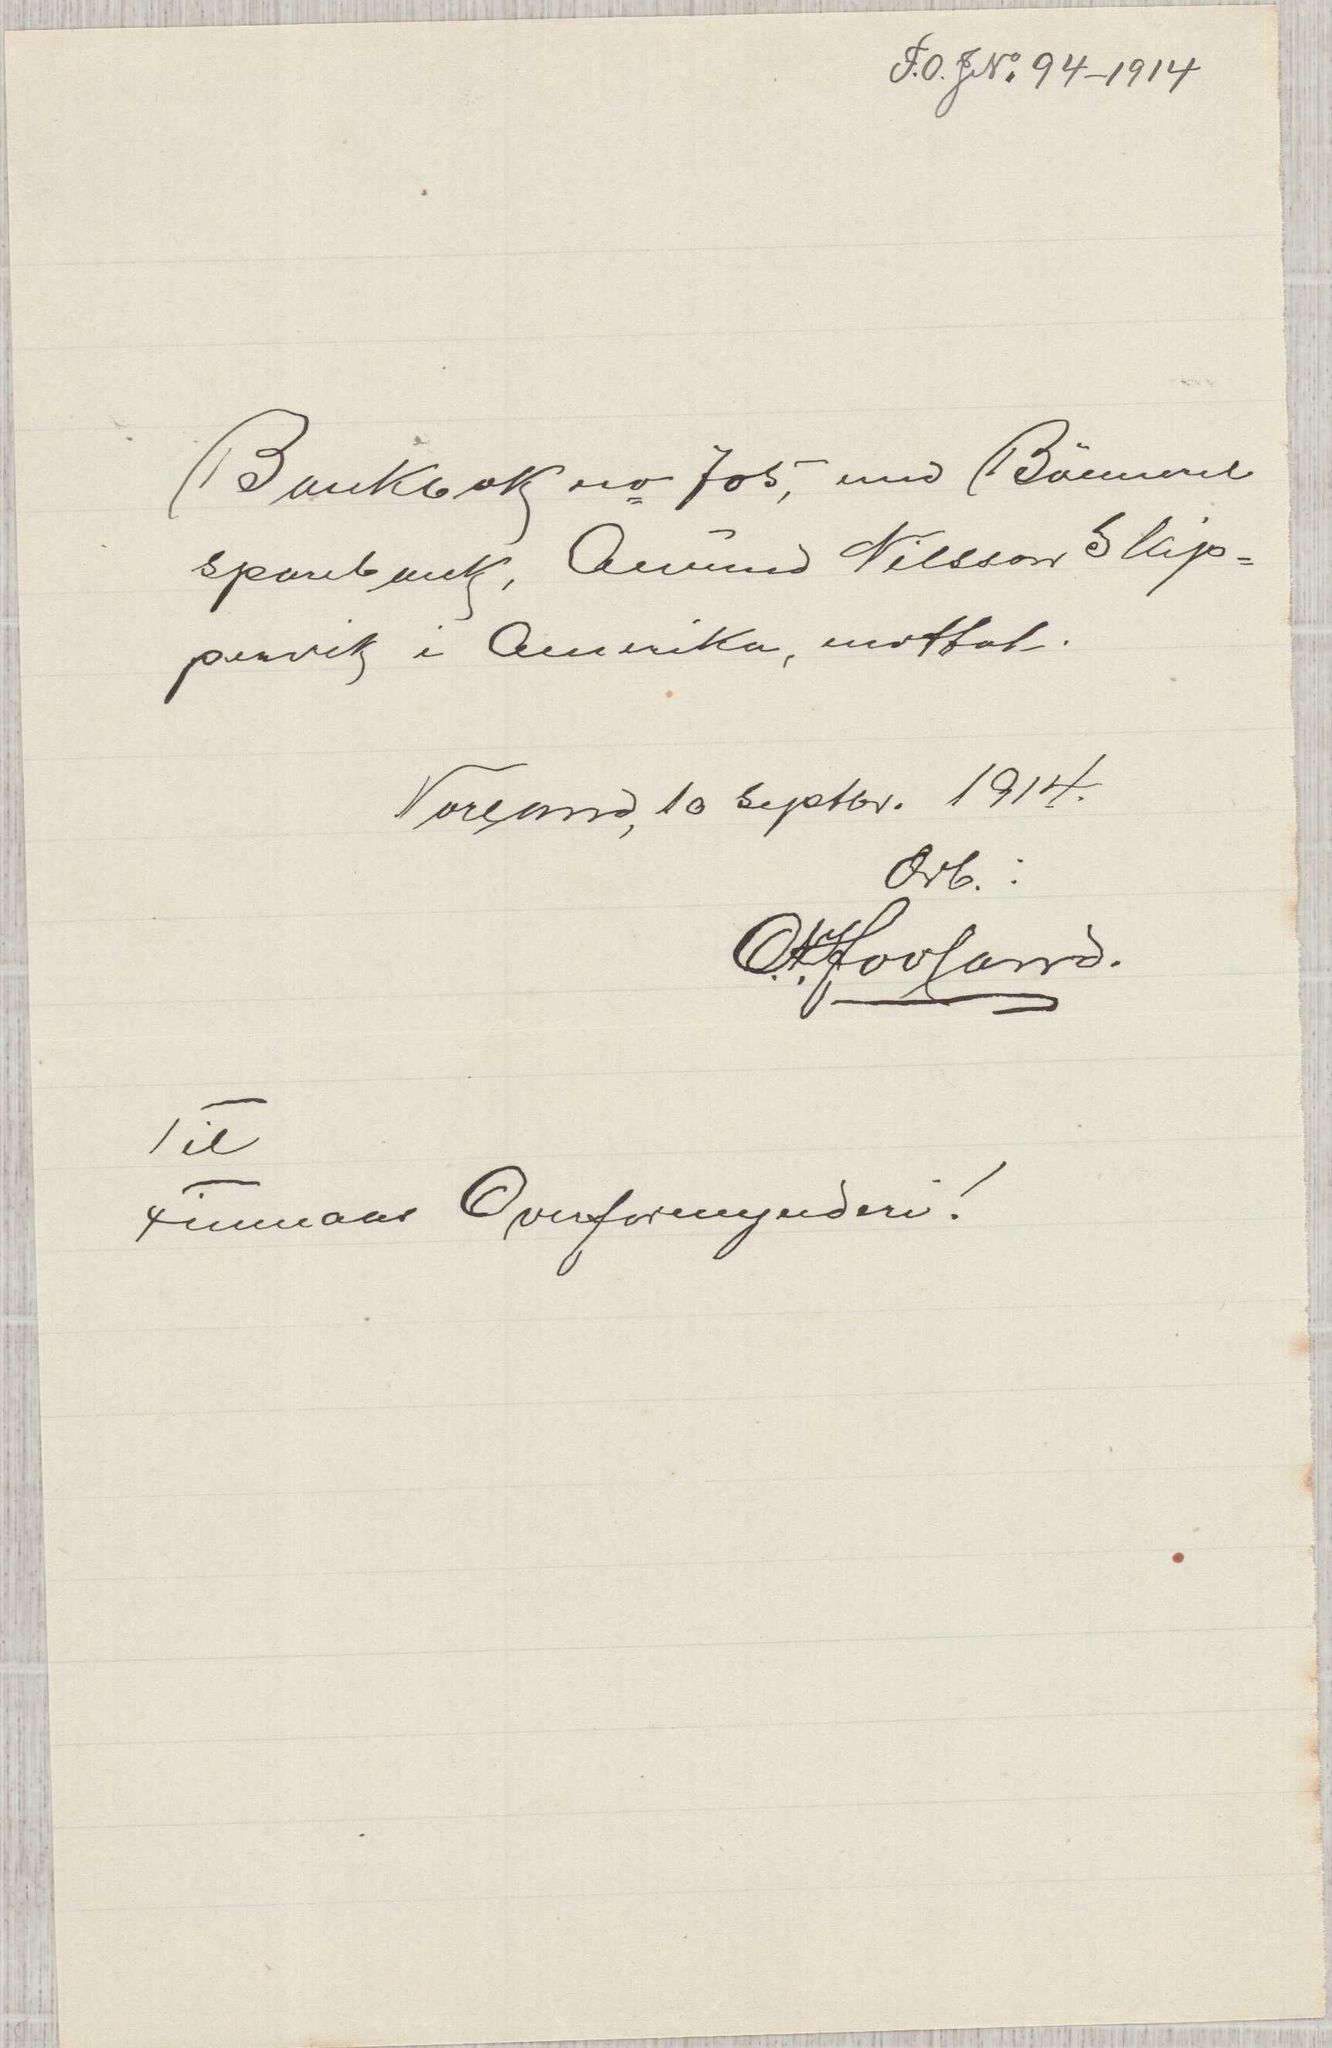 F.O. J.No. 94-1914
Bankbok no 705, med Bömmel
sparebank, Amund Nilsson Skip-
pervik i Amerika, mottat.
10 septbr. 1914.
Erb. :
Hovland.
Til
Finnaas Overformynderi!